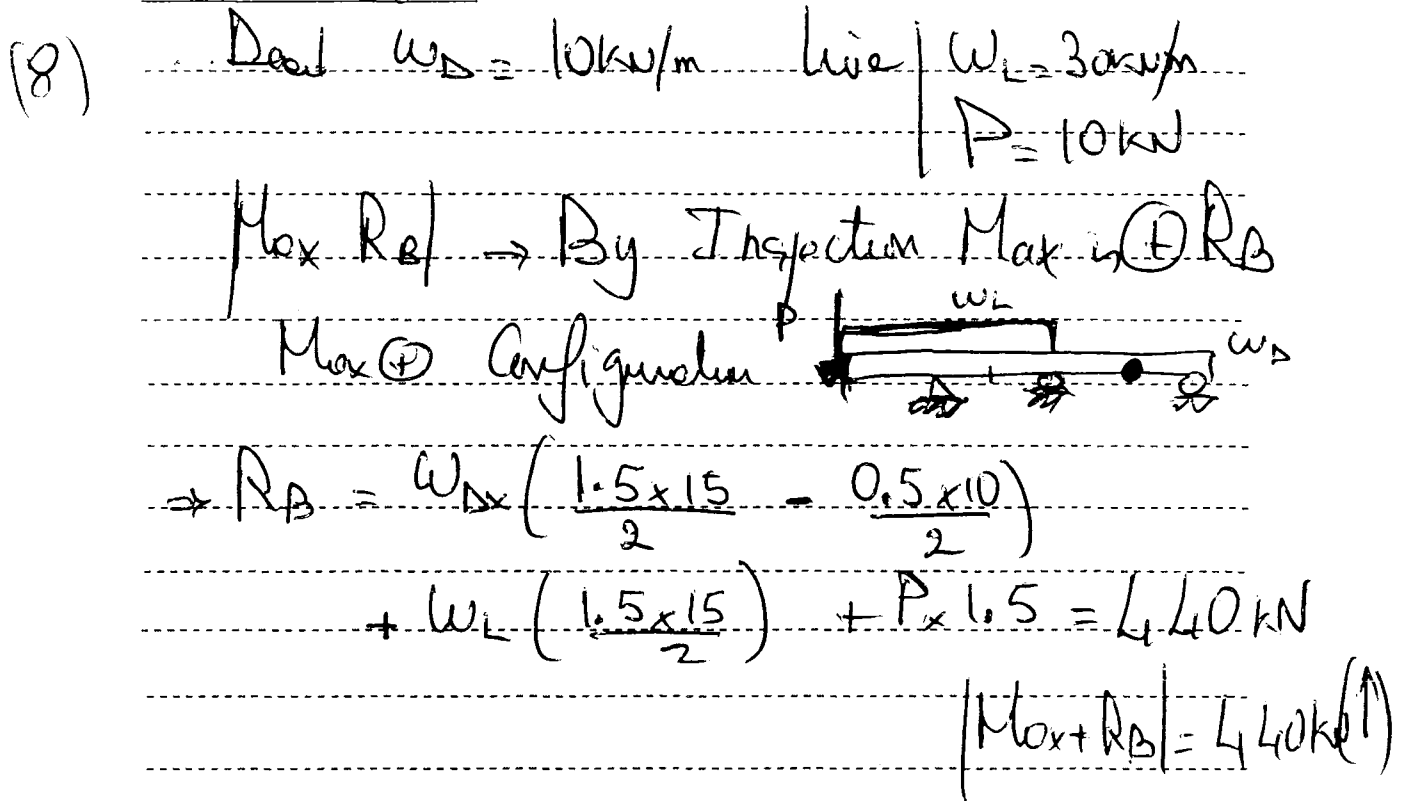 (8) Dead W_D = 10kN/m Live | W_L = 30kN/m
P = 10kN
|Max R_B| → By Inspection Max is ⊕ R_B
Max ⊕ Configuration P W_L W_D
→ R_B = W_D x ( 1.5 x 15 / 2 - 0.5 x 10 / 2 )
+ W_L ( 1.5 x 15 / 2 ) + P x 1.5 = 440 kN
|Max + R_B| = 440kN (↑)